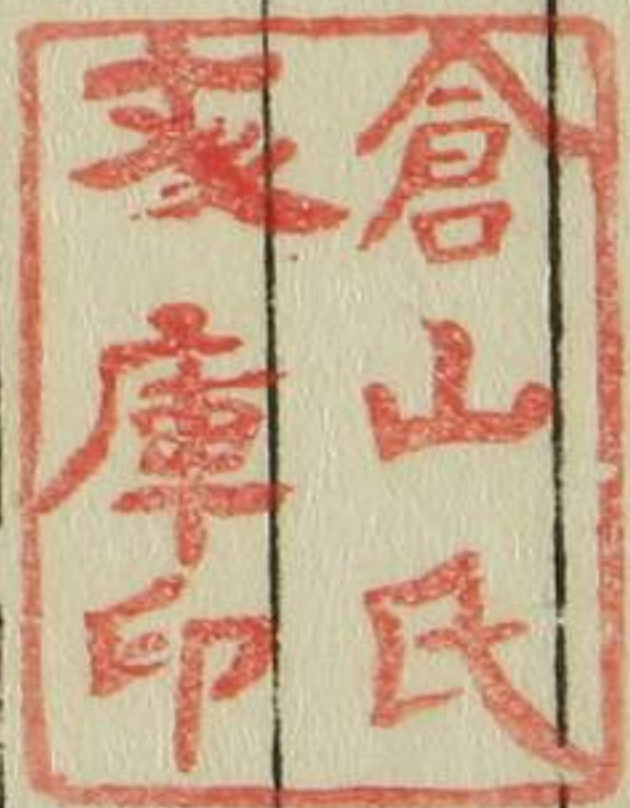 倉山氏
文庫印